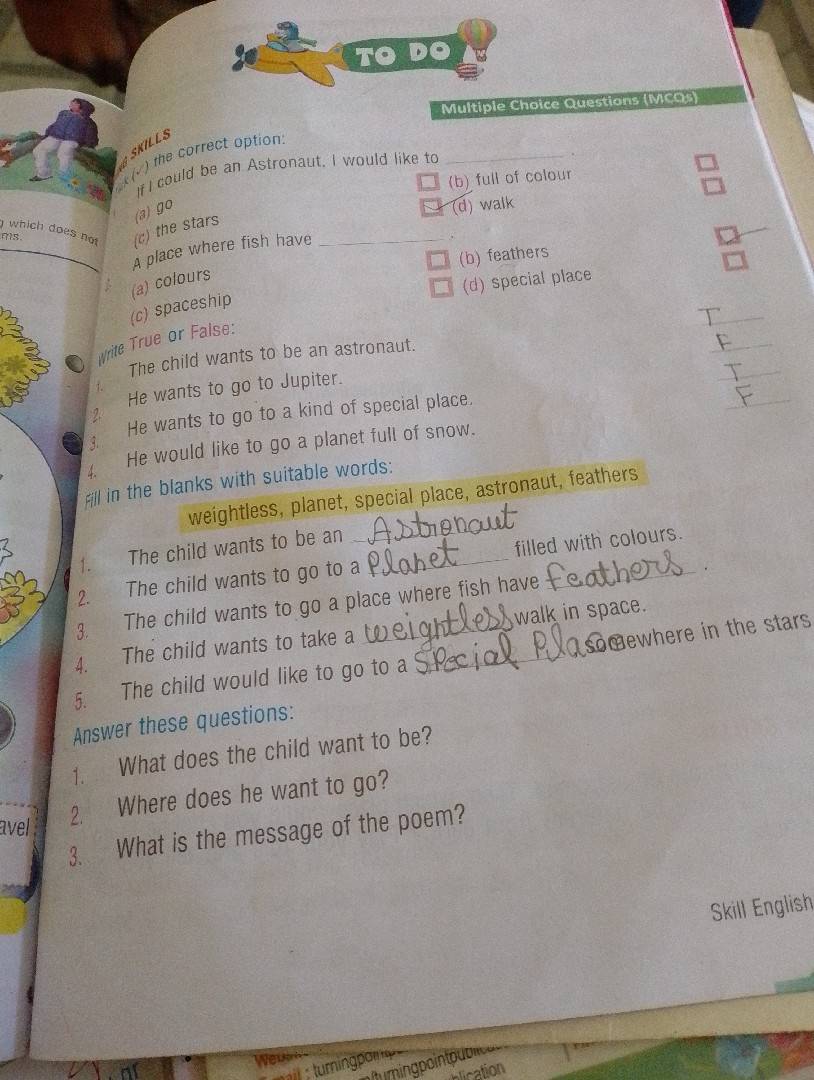 TO DO
Multiple Choice Questions (MCQs)
SKILLS
the correct option:
If I could be an Astronaut, I would like to ________.
(a) go
(b) full of colour
(c) the stars
(d) walk
A place where fish have ________.
(a) colours
(b) feathers
(c) spaceship
(d) special place
Write True or False:
1. The child wants to be an astronaut. T
2. He wants to go to Jupiter. F
3. He wants to go to a kind of special place. T
4. He would like to go a planet full of snow. F
Fill in the blanks with suitable words:
weightless, planet, special place, astronaut, feathers
1. The child wants to be an Astronaut
2. The child wants to go to a Planet filled with colours.
3. The child wants to go a place where fish have feathers.
4. The child wants to take a weightless walk in space.
5. The child would like to go to a Special Pla somewhere in the stars
Answer these questions:
1. What does the child want to be?
2. Where does he want to go?
3. What is the message of the poem?
Skill English
which does not
ms.
avel